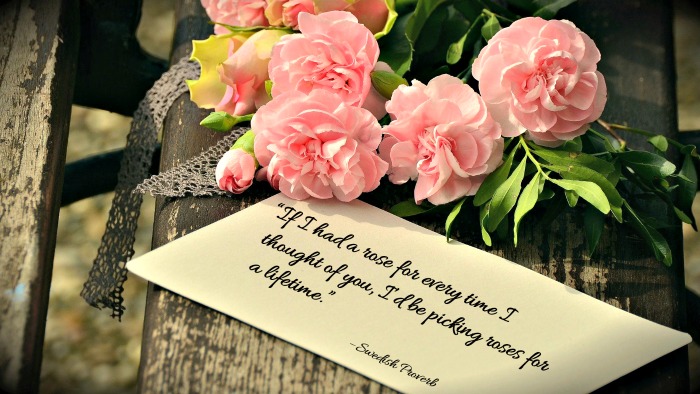 "If I had a rose for every time I
thought of you, I'd be picking roses for
a lifetime."
- Swedish Proverb